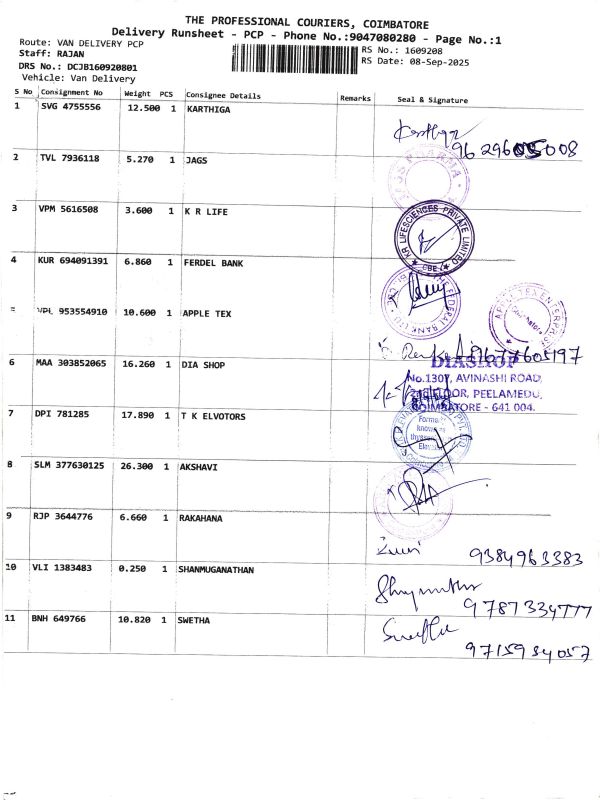 THE PROFESSIONAL COURIERS, COIMBATORE
Delivery Runsheet - PCP - Phone No.:9047080280 - Page No.:1
Route: VAN DELIVERY PCP
RS No.: 1609208
Staff: RAJAN
RS Date: 08-Sep-2025
DRS No.: DCJB160920801
Vehicle: Van Delivery
S No Consignment No Weight PCS Consignee Details Remarks Seal & Signature
1 SVG 4755556 12.500 1 KARTHIGA
2 TVL 7936118 5.270 1 JAGS
3 VPM 5616508 3.600 1 K R LIFE
KR LIFESCIENCES PRIVATE LIMITED
CBE
4 KUR 694091391 6.860 1 FERDEL BANK
THE FEDERAL BANK LTD
VPL 953554910 10.600 1 APPLE TEX
6 MAA 303852065 16.260 1 DIA SHOP
DIASHOP
No.1307, AVINASHI ROAD,
FLOOR, PEELAMEDU,
COIMBATORE - 641 004.
7 DPI 781285 17.890 1 T K ELVOTORS
known as
8 SLM 377630125 26.300 1 AKSHAVI
9 RJP 3644776 6.660 1 RAKAHANA
9384963383
10 VLI 1383483 0.250 1 SHANMUGANATHAN
11 BNH 649766 10.820 1 SWETHA